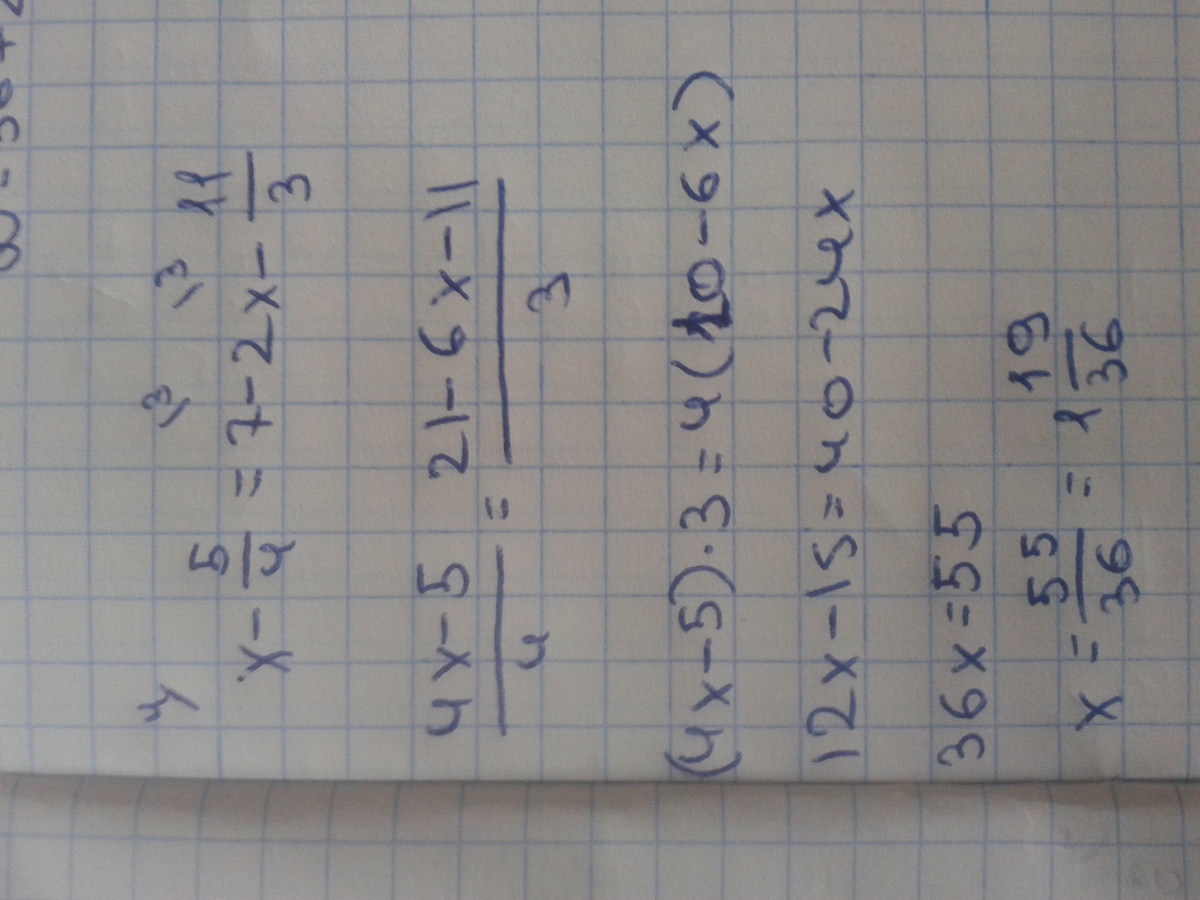 x - 5/4 = 7 - 2x - 11/3
(4x - 5)/4 = (21 - 6x - 11)/3
(4x - 5) · 3 = 4(10 - 6x)
12x - 15 = 40 - 24x
36x = 55
x = 55/36 = 1 19/36